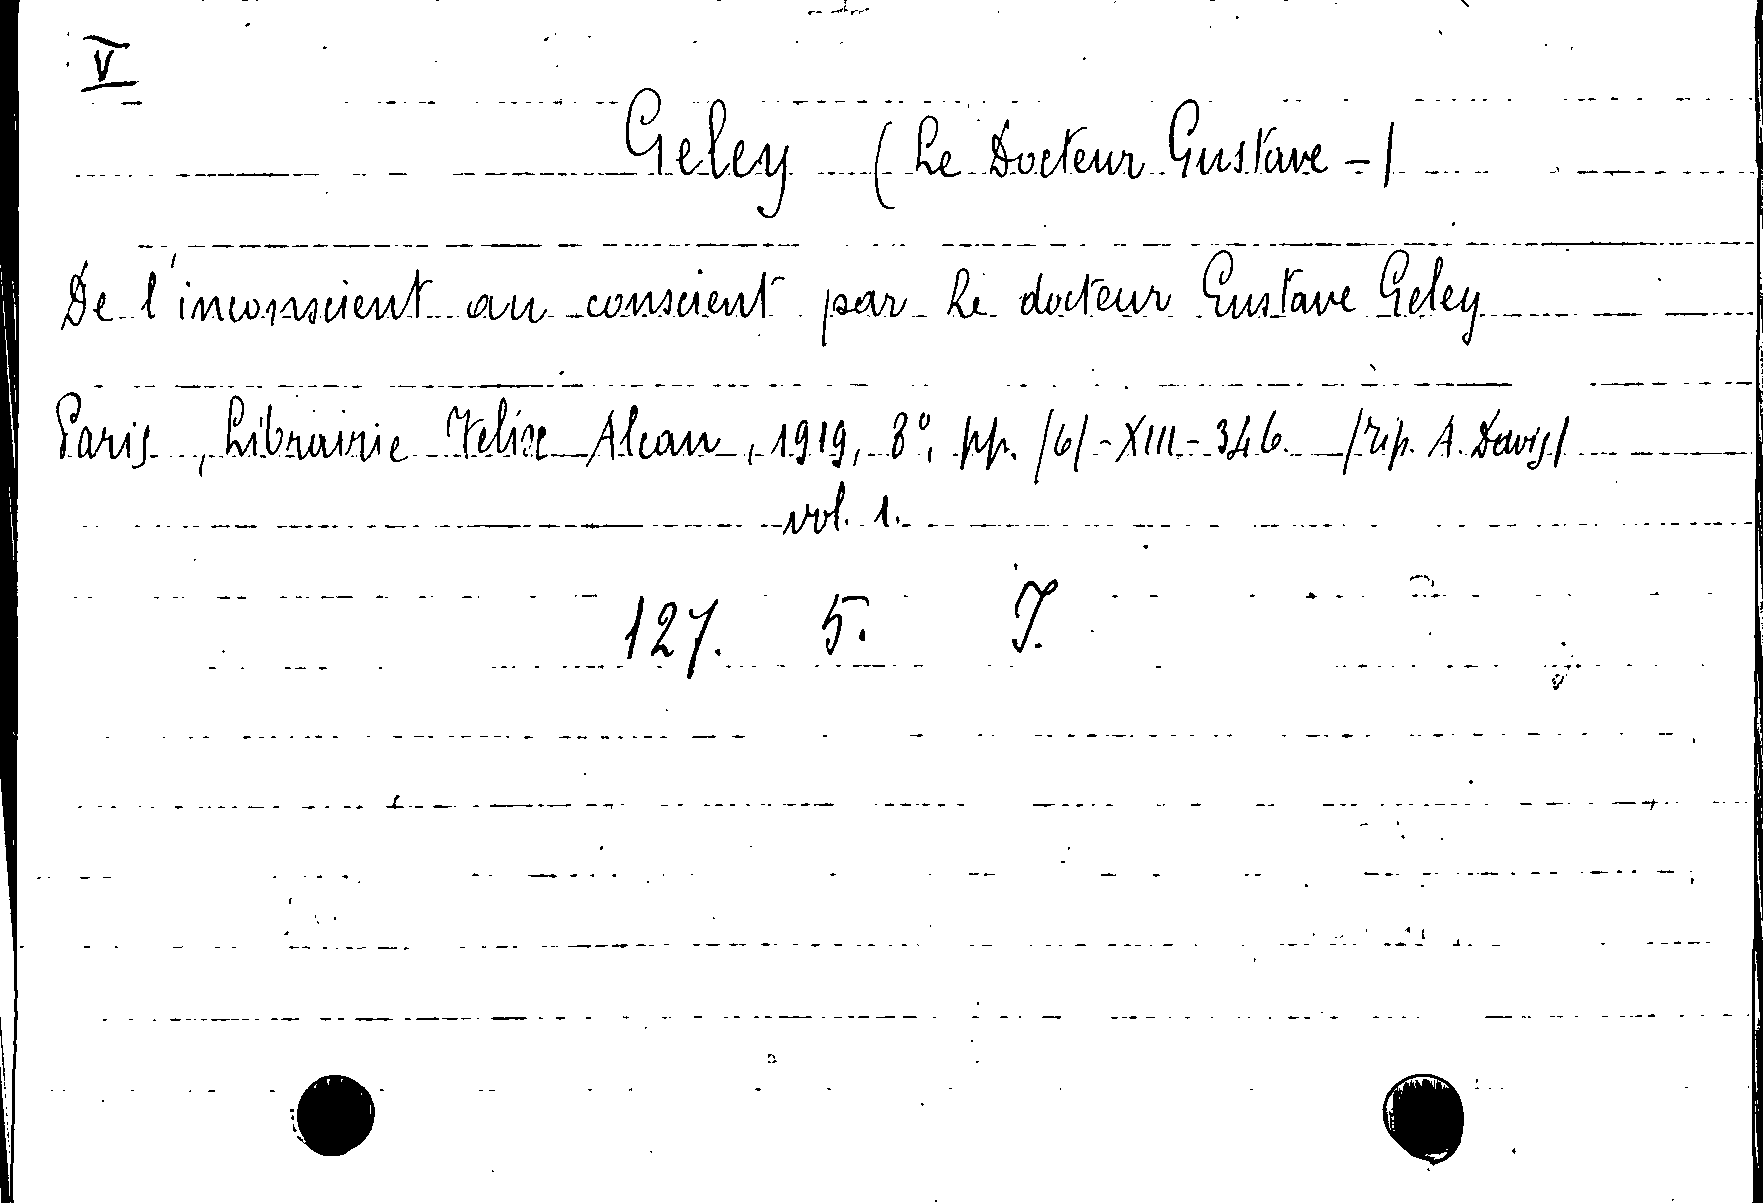 V
Geley (Le Docteur Gustave -/
De l'inconscient au conscient par Le docteur Gustave Geley
Paris, Librairie Felix Alcan, 1919, 8°, pp. /6/-XIII-346. /tip. A. Davy/
vol. 1.
127. 5. J.